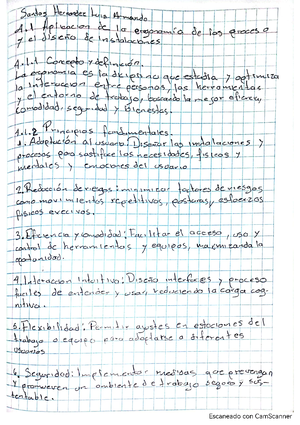 Santos Hernandez Luis Armando
4.1 Aplicacion de la ergonomia de los proceso
y el diseño de instalaciones
4.1.1 Concepto y definición.
La ergonomia es la diciplina que estudia y optimiza
la interaccion entre personas, las herramientas
y el entorno de trabajo, buscando la mejor eficiencia,
comodidad, seguridad y bienestar.
4.1.2 Principios fundamentales.
1. Adaptación al usuario: Diseñar las instalaciones y
procesos para satisfice los necesidades, fisicos y
mentales y emociones del usuario
2. Reducción de riesgos: minimizar factores de riesgos
como movimientos repetitivos, posturas, esfuerzos
fisicos execivos.
3. Eficiencia y comodidad: Facilitar el acceso, uso y
control de herramientas y equipos, maximizando la
oportunidad.
4. Interaccion Intuitivo: Diseño interfaces y proceso
faciles de entender y usar, reduciendo la carga cog-
nitiva.
5. Flexibilidad: Permitir ajustes en estaciones del
trabajo o equipo para adaptarse a diferentes
usuarios
6. Seguridad: Implementar medidas que prevengan
y promueven un ambiente de trabajo seguro y sus-
tentable.
Escaneado con CamScanner